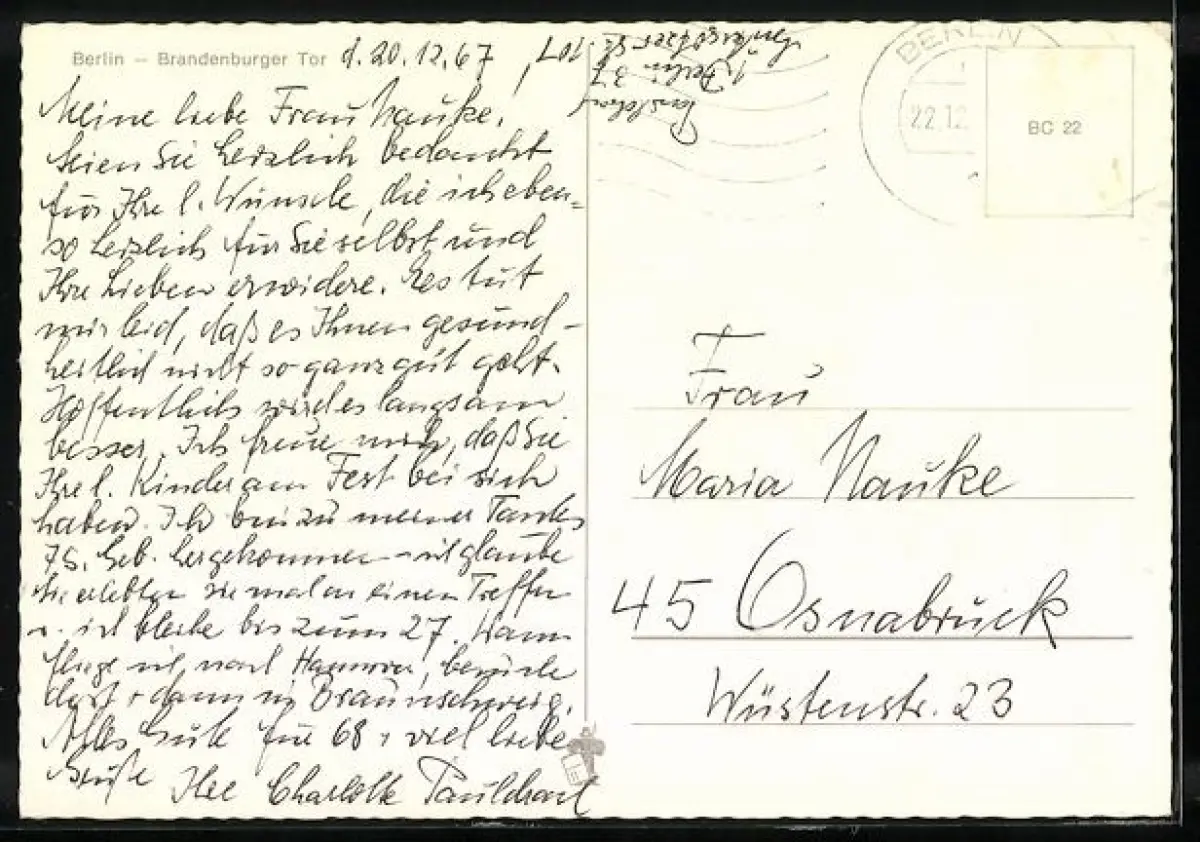 Berlin – Brandenburger Tor d. 20.12.67
Meine liebe Frau Nauke,
Seien Sie herzlich bedankt
für Ihre l. Wünsche, die ich eben-
so herzlich für Sie selbst und
Ihre Lieben erwidere. Es tut
mir leid, daß es Ihnen gesund-
heitlich nicht so ganz gut geht.
Hoffentlich wird es langsam
besser. Ich freue mich, daß Sie
Ihre l. Kinder am Fest bei sich
haben. Ich bin zu meiner Tante
75. Geb. hergekommen – ich glaube
Sie erlebten sie mal an einem Treffen
u. ich bleibe bis zum 27. Dann
fliege ich nach Hannover, besuche
dort + dann in Braunschweig.
Alles Gute für 68 + viel liebe
Grüße Ihre Charlotte
1 Berlin 37
BERLIN
22.12.
BC 22
Frau
Maria Nauke
45 Osnabrück
Wüstenstr. 23